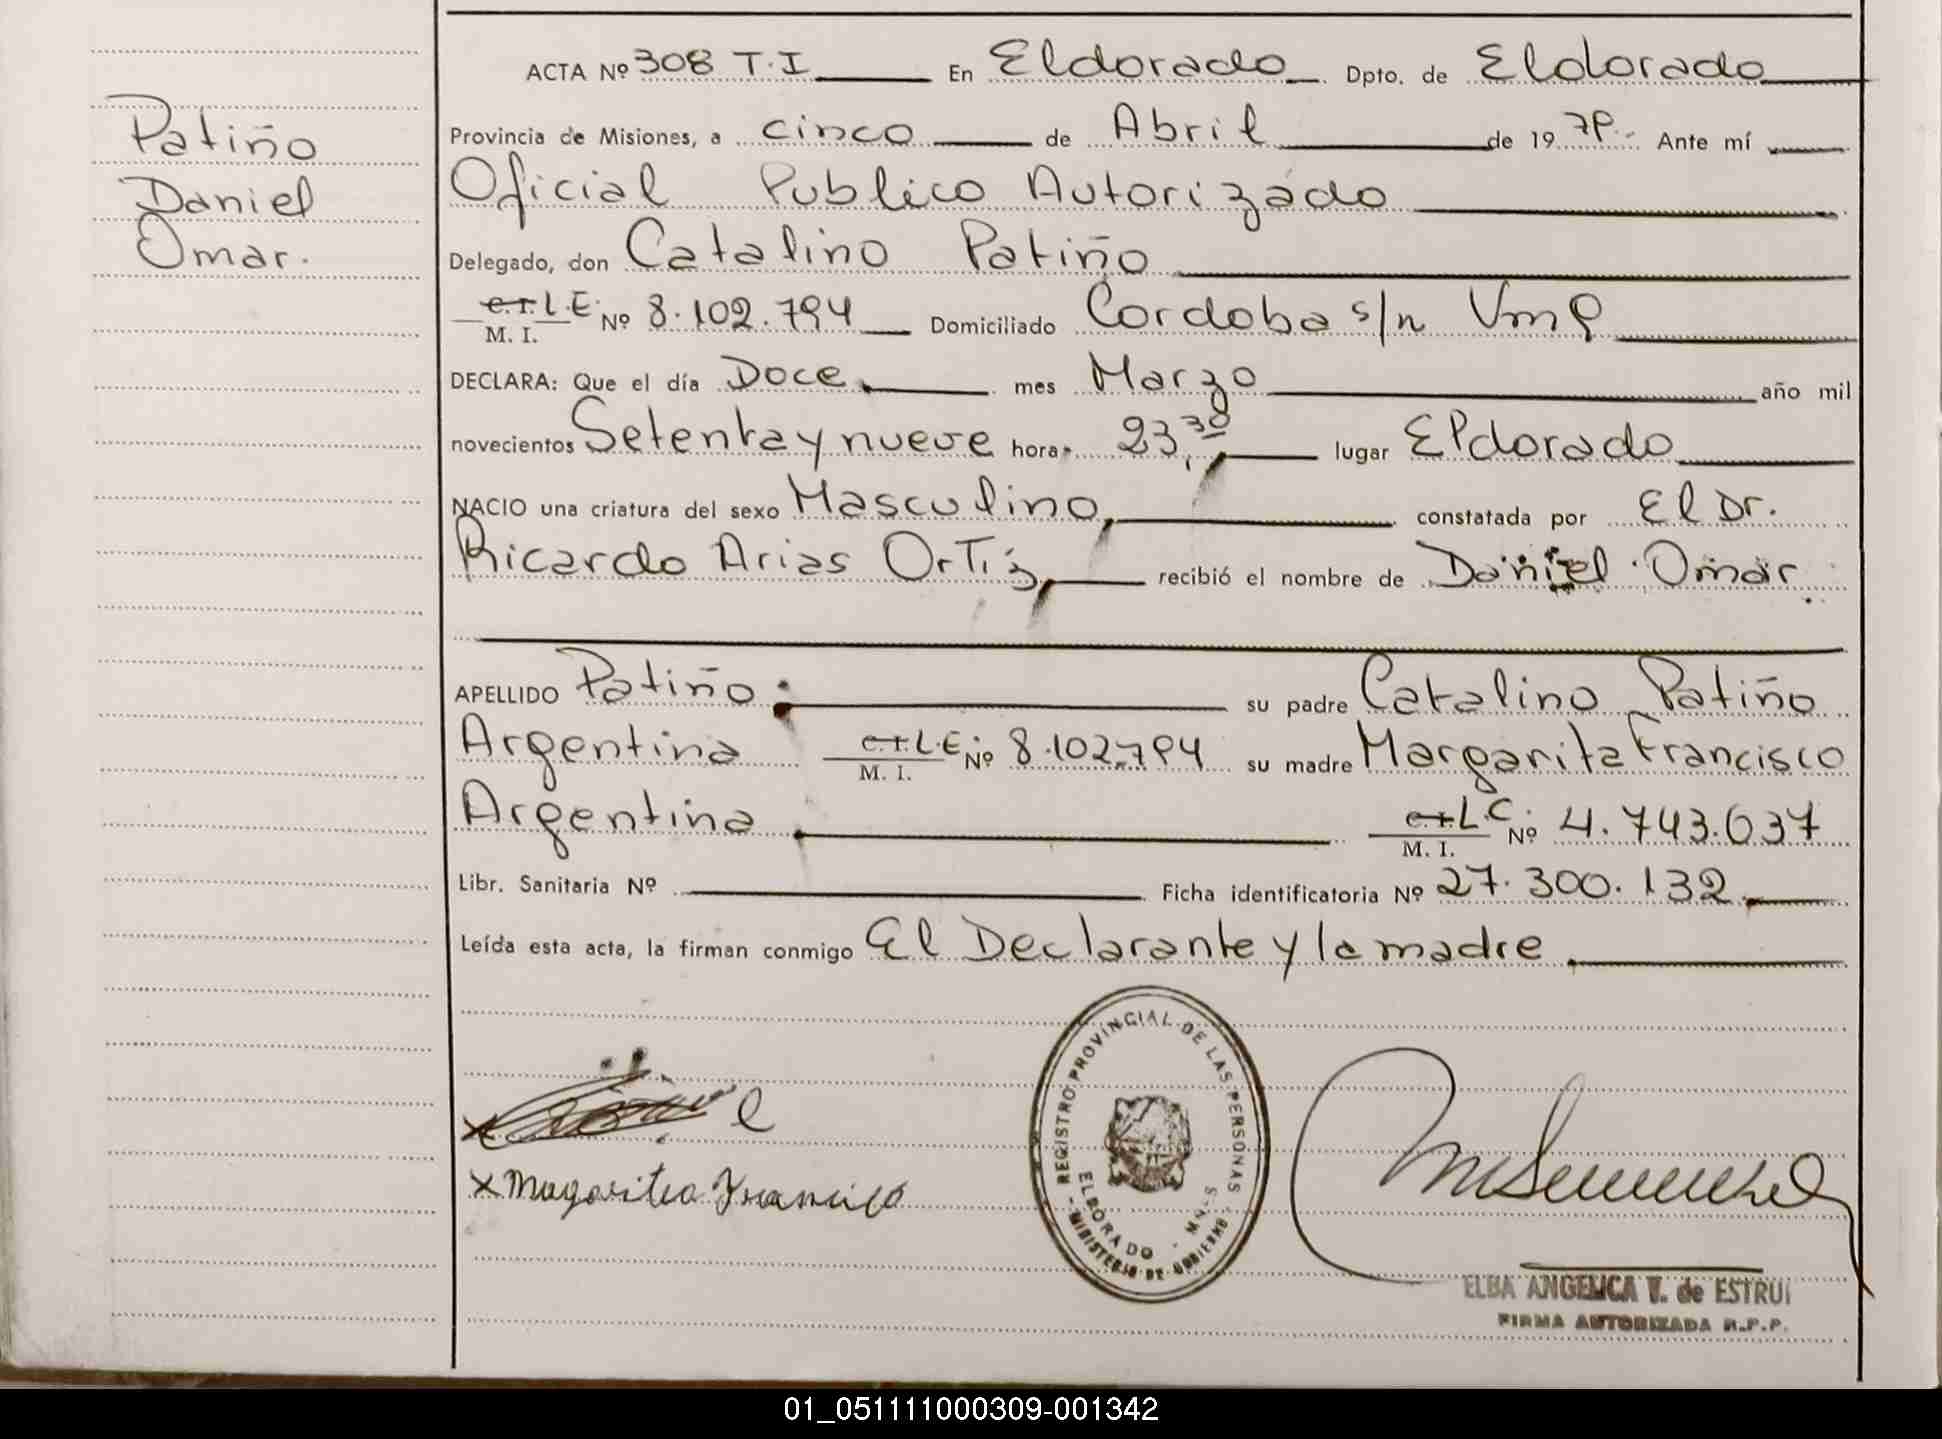 Patiño
Daniel
Omar.
ACTA Nº 308 T.I En Eldorado Dpto. de Eldorado
Provincia de Misiones, a cinco de Abril de 1979. Ante mí
Oficial Publico Autorizado
Delegado, don Catalino Patiño
C.I. L.E. Nº 8.102.794 Domiciliado Cordoba s/n
M. I.
DECLARA: Que el día Doce mes Marzo año mil
novecientos Setenta y nueve horas 23,30 lugar Eldorado
NACIO una criatura del sexo Masculino, constatada por El Dr.
Ricardo Arias Ortíz, recibió el nombre de Daniel Omar.
APELLIDO Patiño. su padre Catalino Patiño
Argentina C.I. L.E. Nº 8.102.794 su madre Margarita Francisco
M. I.
Argentina C.I. L.C. Nº 4.743.637
M. I.
Libr. Sanitaria Nº Ficha identificatoria Nº 27.300.132
Leída esta acta, la firman conmigo El Declarante y la madre
REGISTRO PROVINCIAL DE LAS PERSONAS
ELDORADO - MNES
MINISTERIO DE GOBIERNO
x Magarita Francisco
ELBA ANGELICA V. de ESTRUI
FIRMA AUTORIZADA R.P.P.
01_051111000309-001342